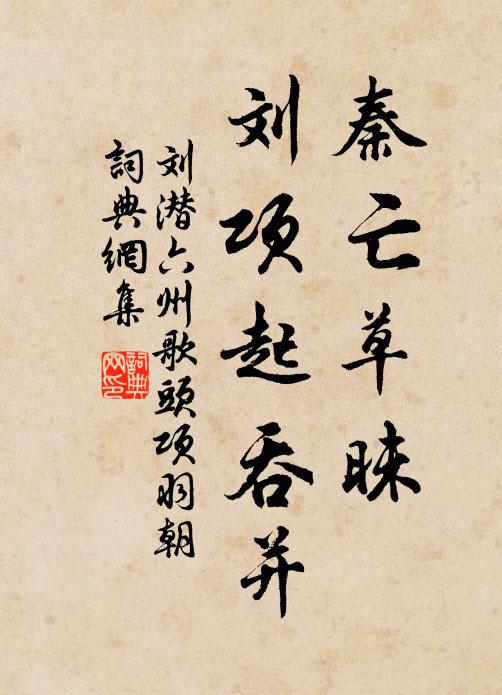 秦亡草昧
刘项起吞并
刘潜六州歌头项羽朝
詞典網集
詞典网印